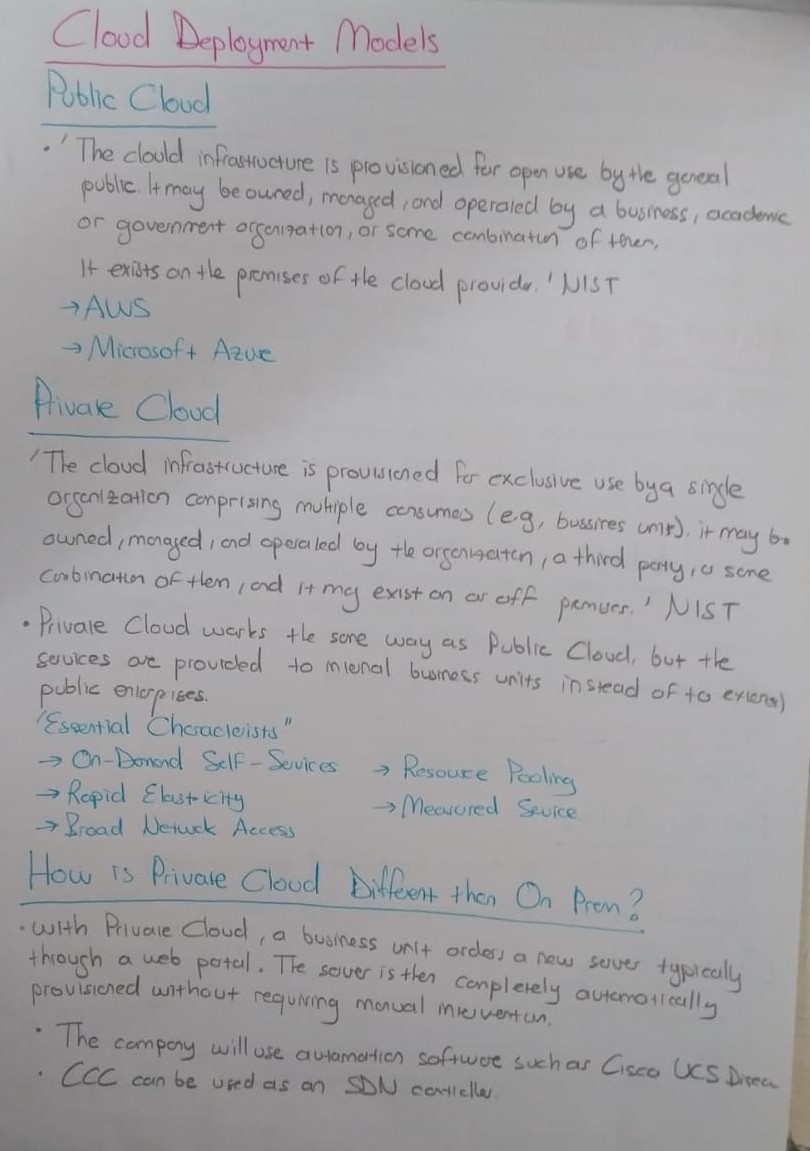 Cloud Deployment Models
Public Cloud
• 'The clould infrastructure is provisioned for open use by the general
public. It may be owned, managed, and operated by a business, academic
or government organization, or some combination of them.
It exists on the premises of the cloud provider.' NIST
→ AWS
→ Microsoft Azure
Private Cloud
'The cloud infrastructure is provisioned for exclusive use by a single
organization comprising multiple consumers (e.g, bussires units). it may be
owned, managed, and operated by the organization, a third party, or some
combination of them, and it may exist on or off premises.' NIST
• Private Cloud works the same way as Public Cloud, but the
services are provided to internal business units instead of to external
public enterprises.
"Essential Characterists"
→ On-Demand Self-Services → Resource Pooling
→ Rapid Elasticity → Measured Service
→ Broad Network Access
How is Private Cloud Different then On Prem?
• With Private Cloud, a business unit orders a new server typically
through a web portal. The server is then completely automatically
provisioned without requiring manual intervention.
• The company will use automation software such as Cisco UCS Director
• CCC can be used as an SDN controller.